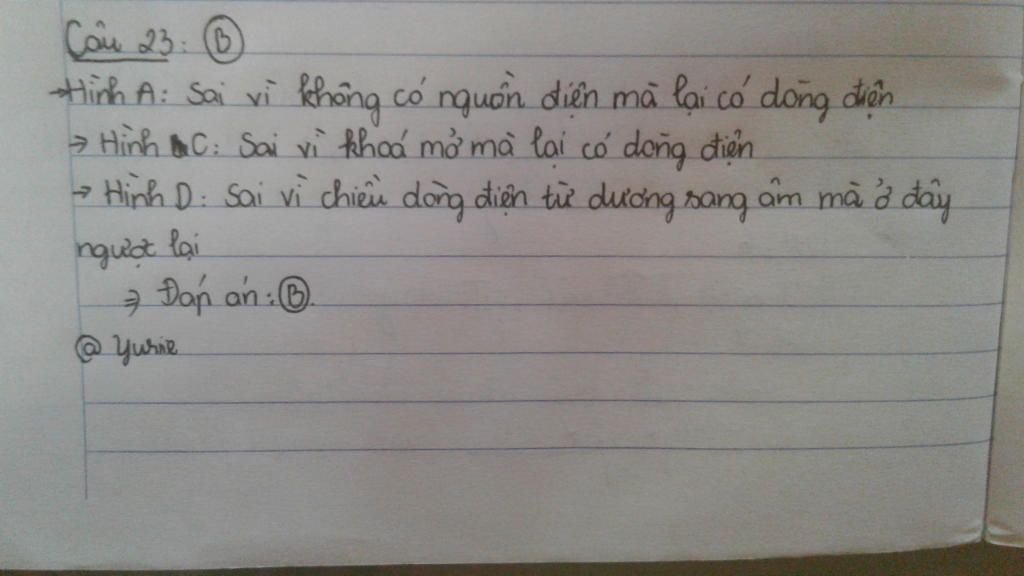 Câu 23: B
→Hình A: Sai vì không có nguồn điện mà lại có dòng điện
→ Hình C: Sai vì khoá mở mà lại có dòng điện
→ Hình D: Sai vì chiều dòng điện từ dương sang âm mà ở đây
ngược lại
⇒ Đáp án: B.
@ Yurie